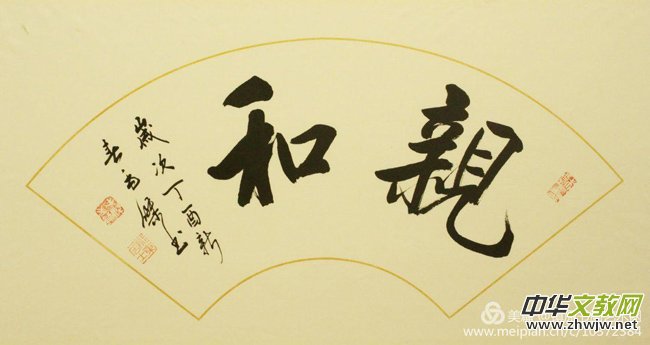 親和
歲次丁酉新
春
書
美
中华文教网
www.zhwjw.net